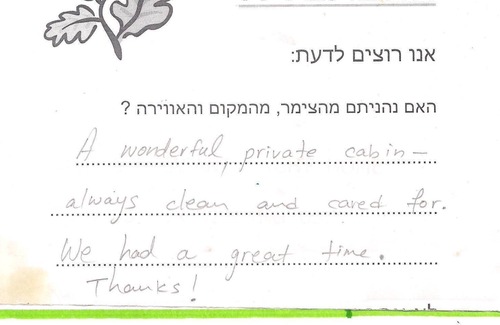 אנו רוצים לדעת:
האם נהניתם מהצימר, מהמקום והאווירה ?
A wonderful, private cabin –
always clean and cared for.
We had a great time.
Thanks!